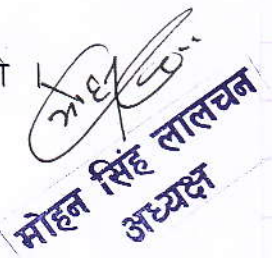 मोहन सिंह लालचन
अध्यक्ष